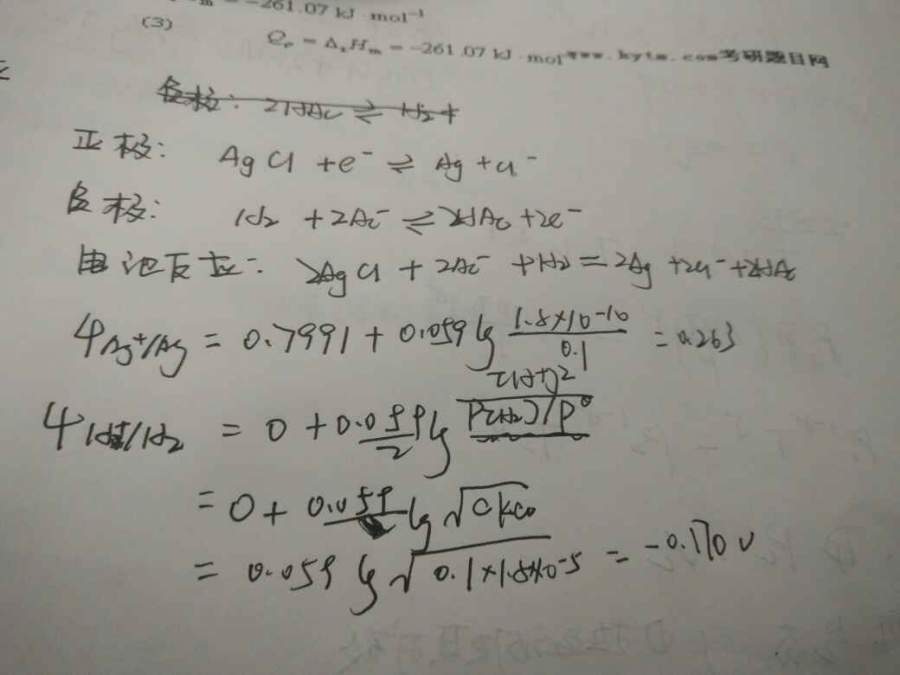 = −261.07 kJ · mol⁻¹
(3) Qₚ = ΔᵣHₘ = −261.07 kJ · mol www.kytm.com考研题目网
负极: 2HAc ⇌ H₂ +
正极: AgCl + e⁻ ⇌ Ag + Cl⁻
负极: H₂ + 2Ac⁻ ⇌ 2HAc + 2e⁻
电池反应: 2AgCl + 2Ac⁻ + H₂ = 2Ag + 2Cl⁻ + 2HAc
φAg⁺/Ag = 0.7991 + 0.059 lg 1.8×10⁻¹⁰ / 0.1 = 0.263
φH⁺/H₂ = 0 + 0.059/2 lg c(H⁺)² / P(H₂)/P°
= 0 + 0.059 lg √cKa
= 0.059 lg √0.1×1.8×10⁻⁵ = −0.170 V